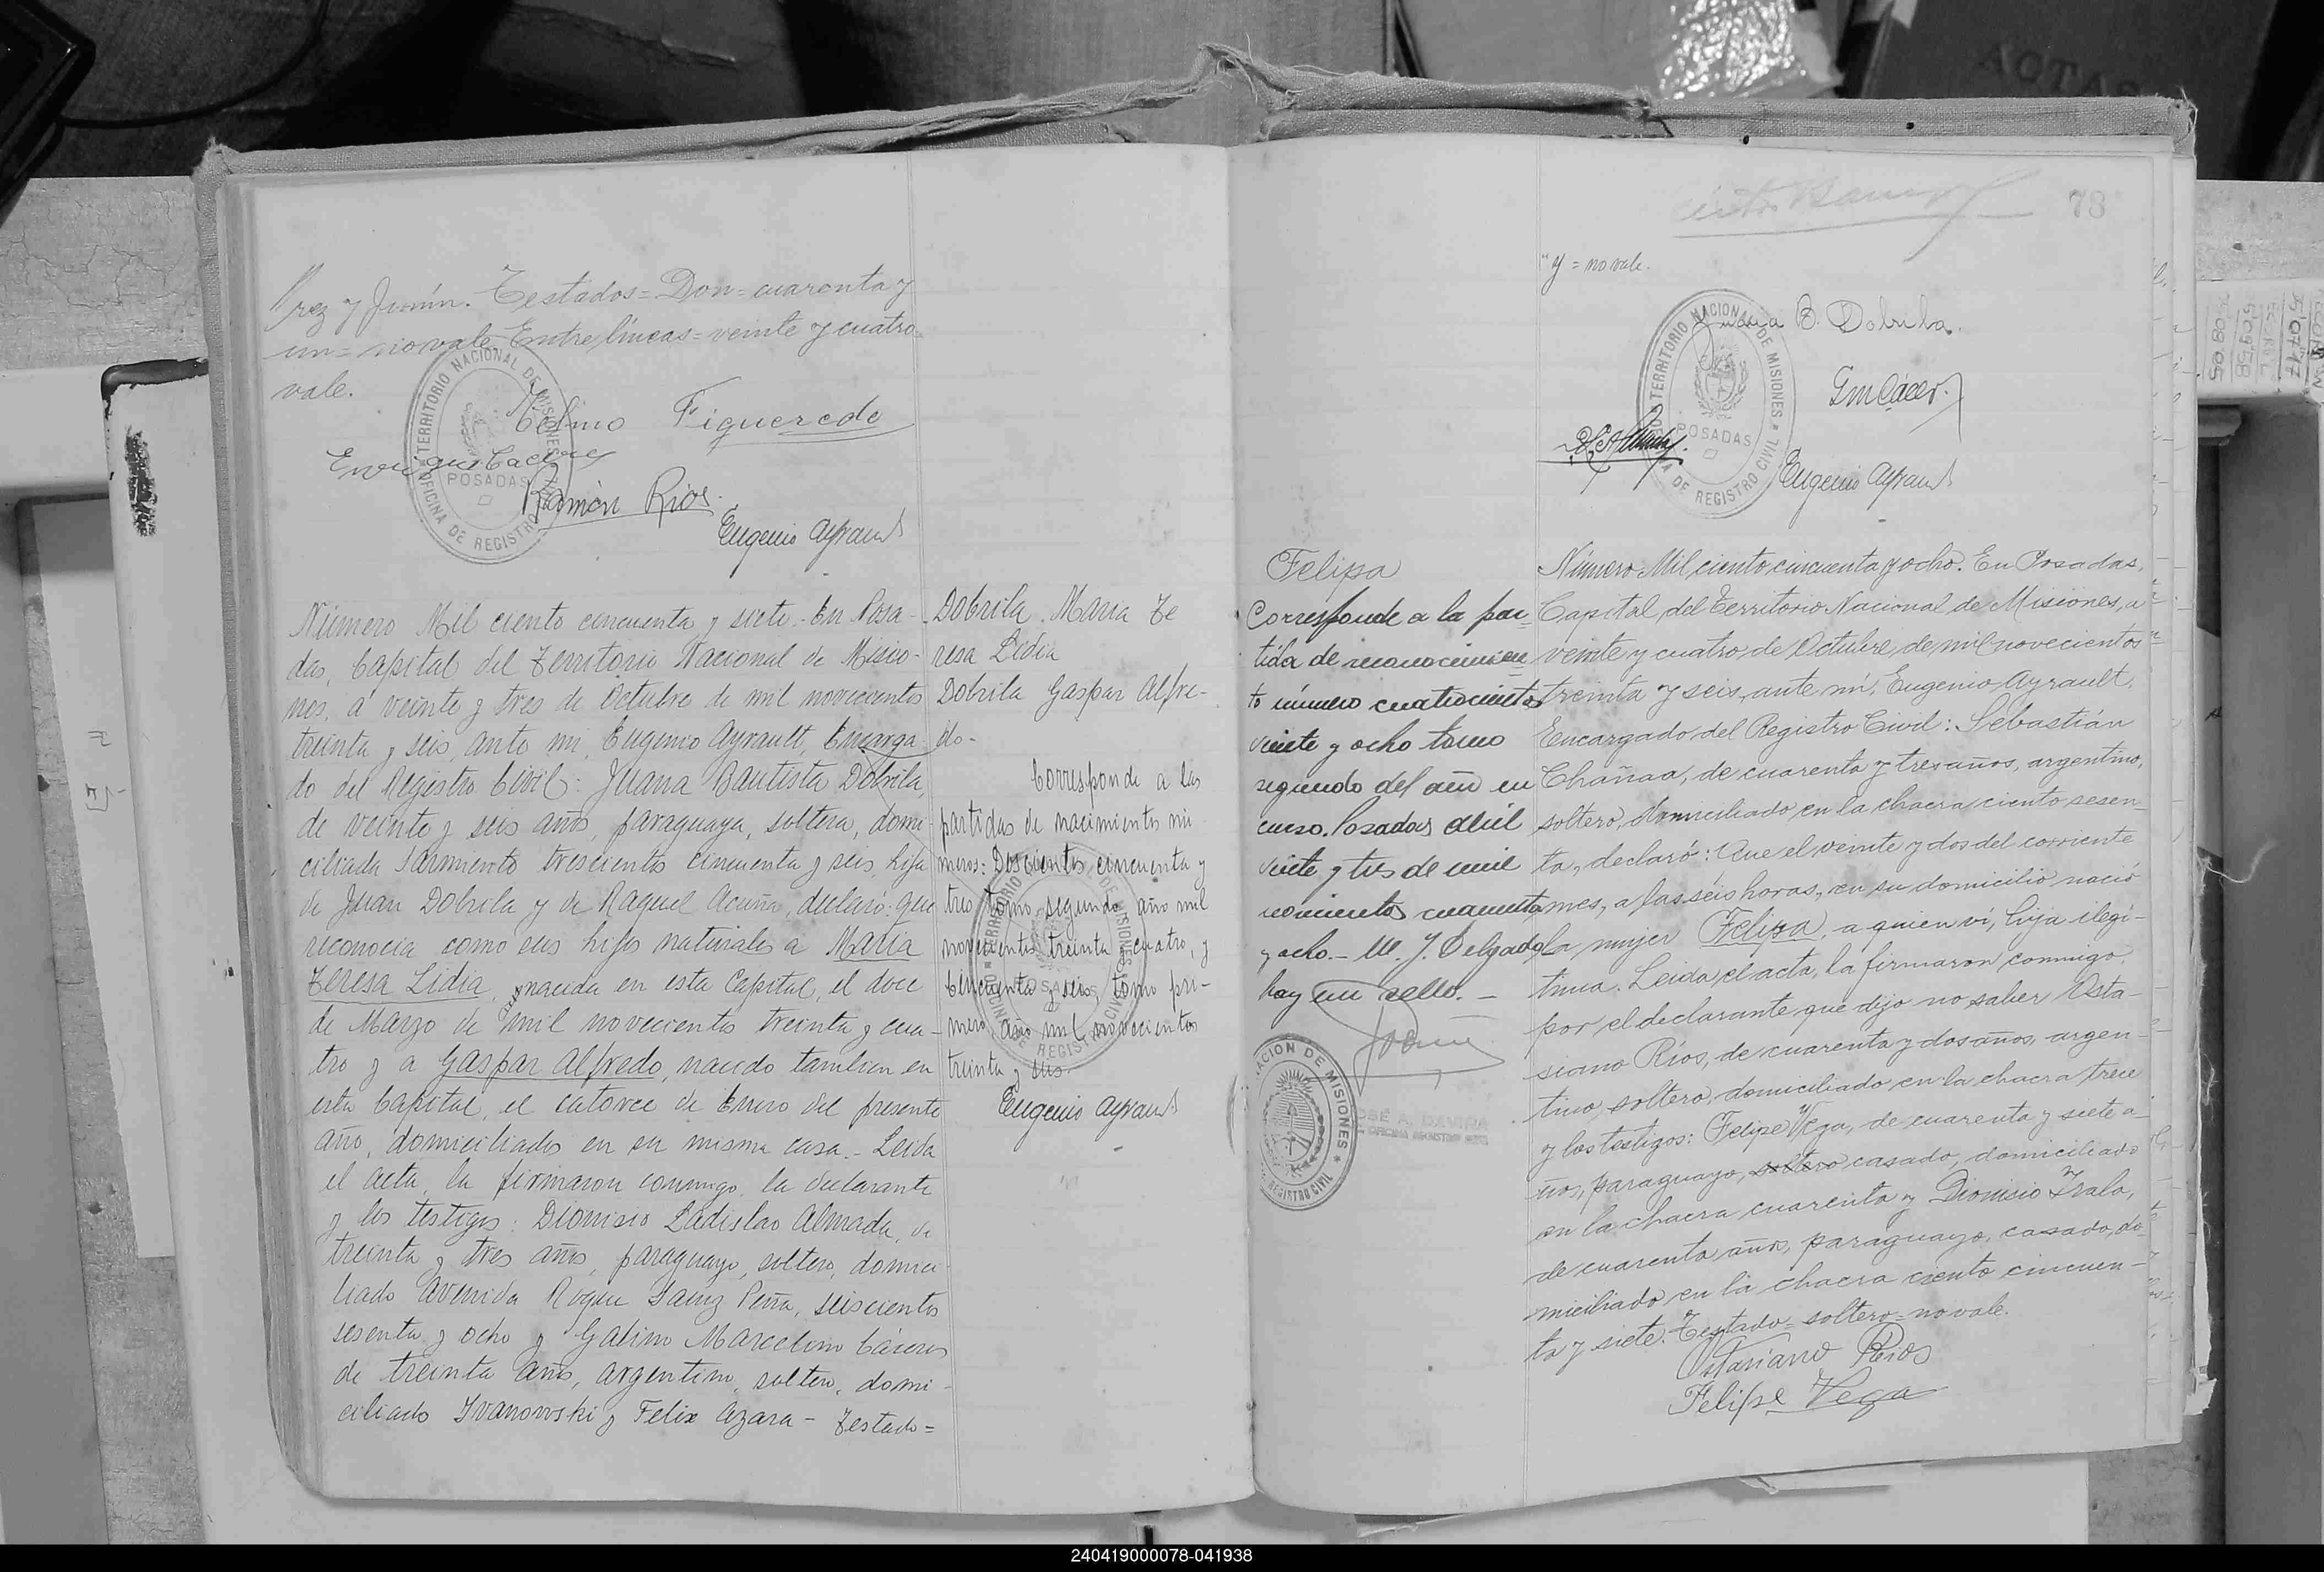 rez y Junín. Testados = Don = cuarenta y
un = no vale. Entre líneas = veinte y cuatro
vale.
TERRITORIO NACIONAL DE MISIONES
OFICINA DE REGISTRO
POSADAS
Telmo Figueredo
Enrique Caceres
Ramón Rios
Eugenio Ayrault
Número Mil ciento cincuenta y siete. En Posa-
das, Capital del Territorio Nacional de Misio-
nes, a veinte y tres de Octubre de mil novecientos
treinta y seis, ante mí, Eugenio Ayrault, Encarga
do del Registro Civil: Juana Bautista Dobrila,
de veinte y seis años, paraguaya, soltera, domi-
ciliada Sarmiento trescientos cincuenta y seis, hija
de Juan Dobrila y de Raquel Acuña, declaró: que
reconocia como sus hijos naturales a María
Teresa Lidia, y nacida en esta Capital, el doce
de Marzo de mil novecientos treinta y cua-
tro y a Gaspar Alfredo, nacido tambien en
esta Capital, el catorce de Enero del presente
año, domiciliados en su misma casa. - Leida
el acta, la firmaron conmigo, la declarante
y los testigos: Dionisio Ladislao Almada, de
treinta y tres años, paraguayo, soltero, domici-
liado Avenida Roque Saenz Peña, seiscientos
sesenta y ocho y Galino Marcelino Cáceres
de treinta años, argentino, soltero, domi-
ciliado Ivanowski y Felix Azara - Testado =
Dobrila. María Te
resa Lidia
Dobrila Gaspar Alfre-
do -
Corresponde a las
partidas de nacimientos nú
meros: Doscientos cincuenta y
tres tomo segundo año mil
novecientos treinta y cuatro, y
Cincuenta y seis, tomo pri-
mero, año mil novecientos
treinta y seis.
Eugenio Ayrault
78
"y = no vale.
Juana B. Dobrila.
TERRITORIO NACIONAL DE MISIONES
OFICINA DE REGISTRO CIVIL
POSADAS
GmCácer.
Eugenio Ayrault
Felipa
Corresponde a la par
tida de reconocimien
to número cuatrocientos
veinte y ocho tomo
segundo del año en
curso. Posadas abril
veinte y tres de mil
novecientos cuarenta
y ocho. - M. J. Delgado
hay un sello. -
MISIONES
REGISTRO CIVIL
JOSÉ A. DAVIÑA
Número Mil ciento cincuenta y ocho. En Posadas,
Capital del Territorio Nacional de Misiones, a
veinte y cuatro de Octubre de mil novecientos
treinta y seis, ante mí, Eugenio Ayrault,
Encargado del Registro Civil: Sebastián
Chañaa, de cuarenta y tres años, argentino,
soltero, domiciliado en la chacra ciento sesen
ta, declaró: Que el veinte y dos del corriente
mes, a las seis horas, en su domicilio nació
la mujer Felipa, a quien ví, hija ilegí-
tima. Leida el acta, la firmaron conmigo,
por el declarante que dijo no saber Osta-
siano Ríos, de cuarenta y dos años, argen-
tino, soltero, domiciliado en la chacra trece
y los testigos: Felipe Vega, de cuarenta y siete a-
ños, paraguayo, soltero casado, domiciliado
en la chacra cuarenta y Dionisio Irala,
de cuarenta años, paraguayo, casado, do-
miciliado en la chacra ciento cincuen-
ta y siete. Testado = soltero = no vale.
Ostaciano Rios
Felipe Vega
240419000078-041938